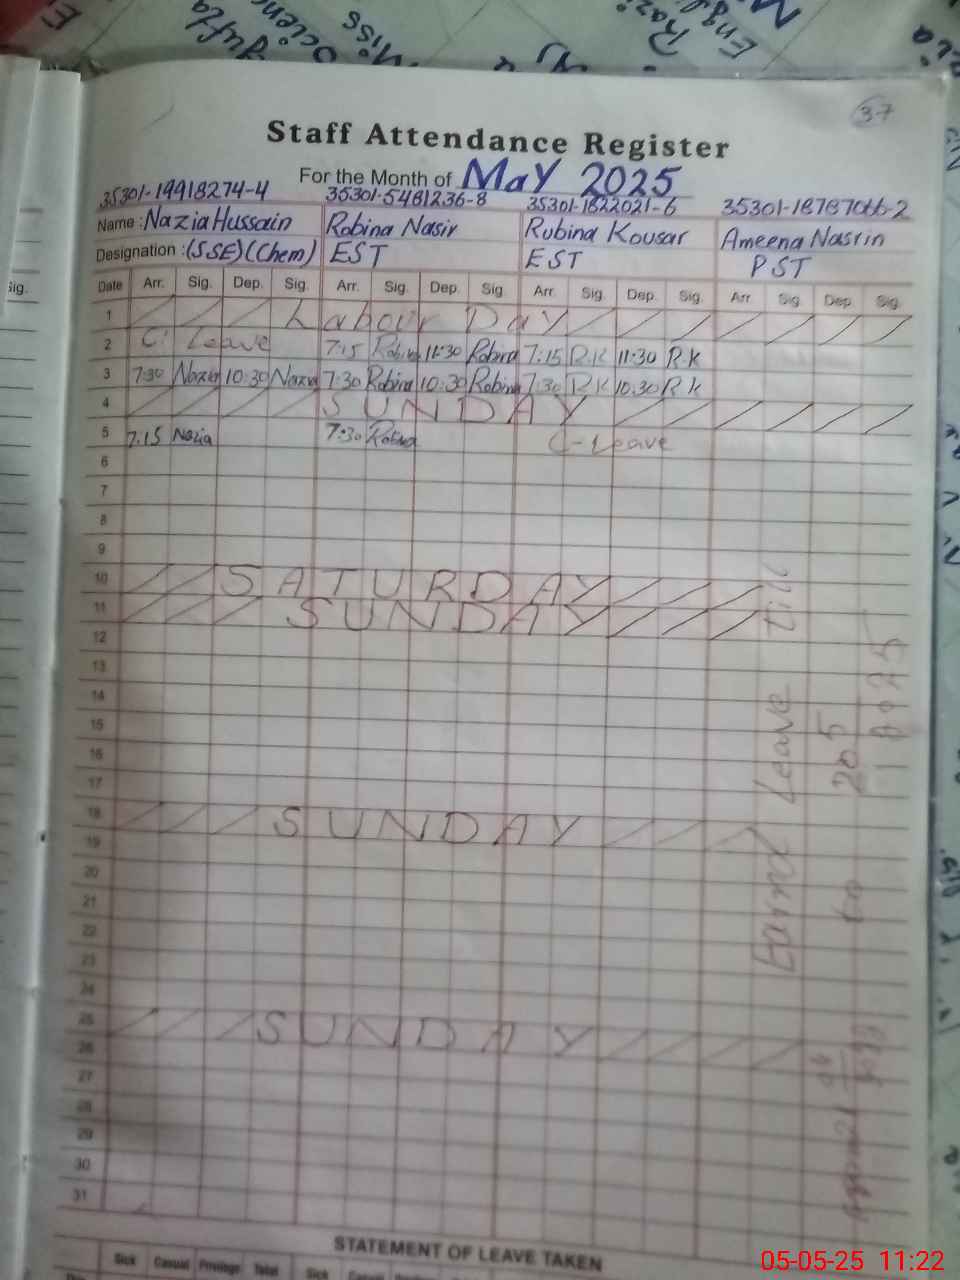 Miss
37
Staff Attendance Register
For the Month of May 2025
35301-19918274-4 35301-5481236-8 35301-1822021-6 35301-18787066-2
Name : Nazia Hussain Robina Nasir Rubina Kousar Ameena Nasrin
Designation : (SSE)(Chem) EST EST PST
Date Arr. Sig. Dep. Sig. Arr. Sig. Dep. Sig. Arr. Sig. Dep. Sig. Arr. Sig. Dep. Sig.
1 Labour Day
2 C. Leave 7:15 Robina 11:30 Robina 7:15 R.K 11:30 R.K
3 7:30 Nazia 10:30 Nazia 7:30 Robina 10:30 Robina 7:30 R.K 10:30 R.K
4 SUNDAY
5 7:15 Nazia 7:30 Robina C-Leave
6
7
8
9
10 SATURDAY
11 SUNDAY
12
13
14
15
16
17
18 SUNDAY
19
20
21
22
23
24
25 SUNDAY
26
27
28
29
30
31
Earnd Leave till
to
2025
STATEMENT OF LEAVE TAKEN
Sick Casual Privilege Total Sick
05-05-25 11:22